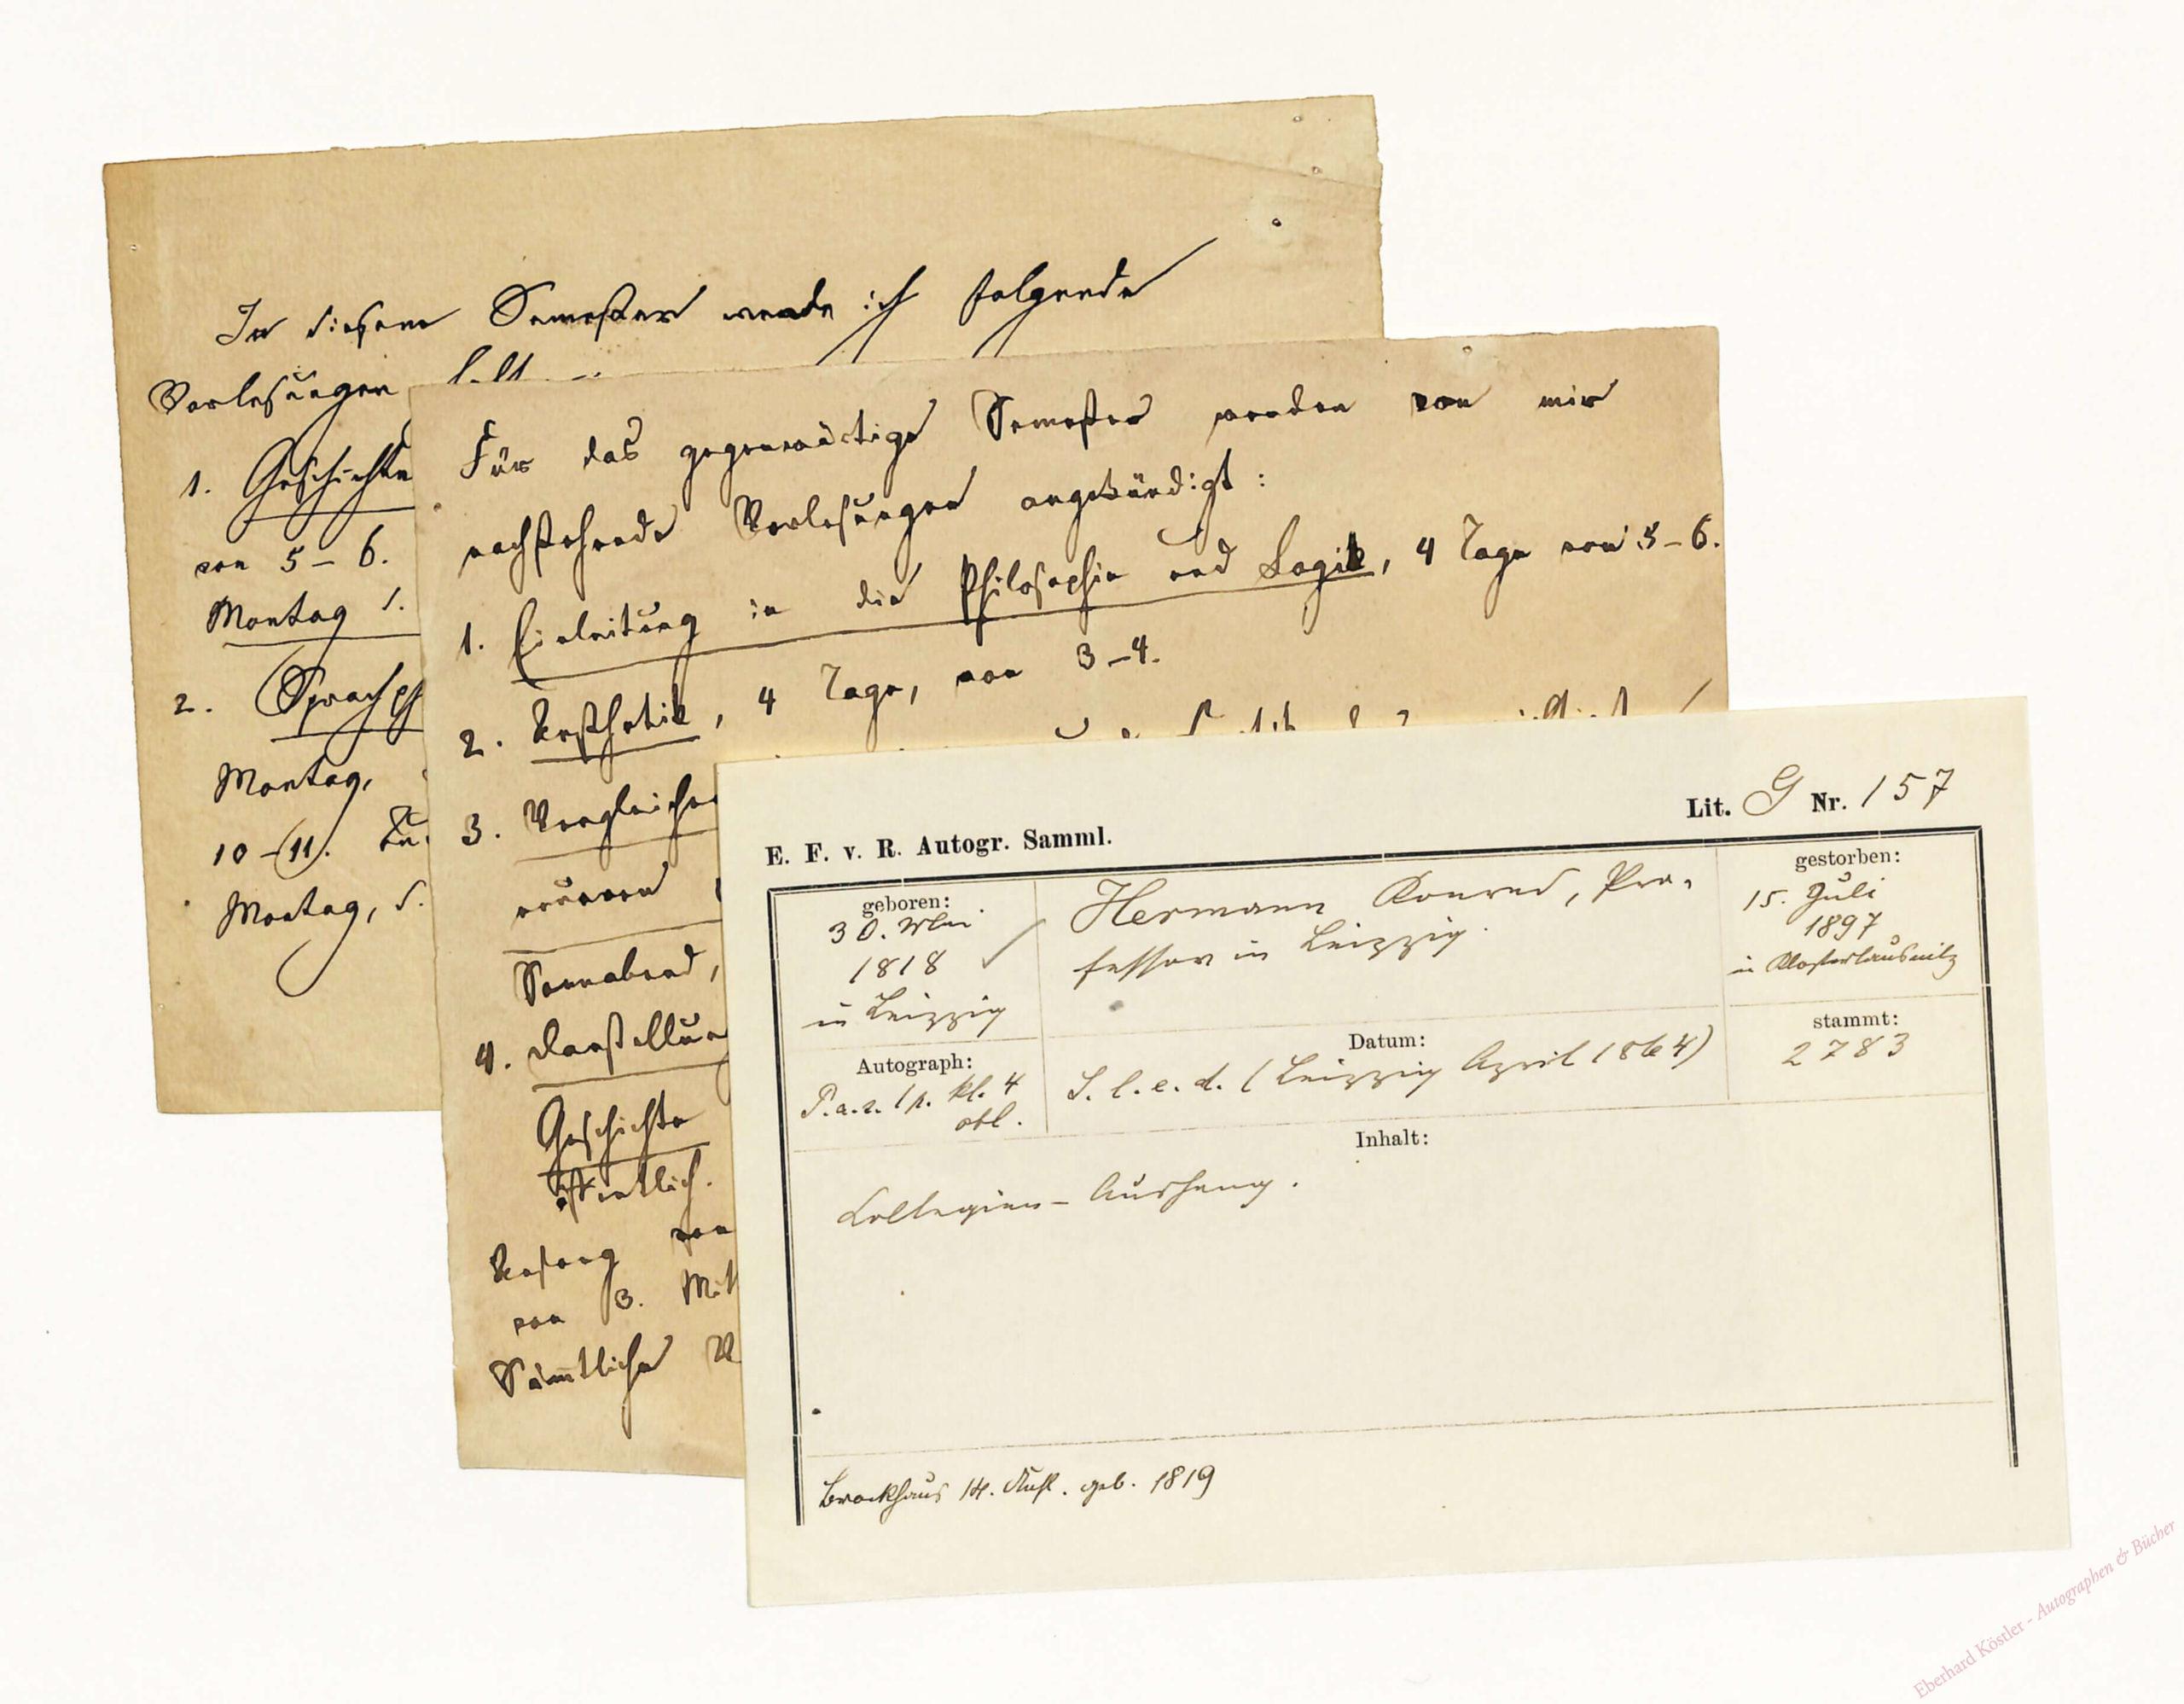 In diesem Semester werde ich folgende
Vorlesungen
1. Geschichte
von 5 – 6.
Montag
2. Sprachph
Montag,
10 – 11.
Montag, d.
Für das gegenwärtige Semester werden von mir
nachstehende Vorlesungen angekündigt:
1. Einleitung in die Philosophie und Logik, 4 Tage von 5 – 6.
2. Aesthetik, 4 Tage, von 3 – 4.
3. Vergleichen
neueren
Sonnabend,
4. Darstellung
Geschichte
öffentlich.
Anfang von
von 3. Mitt
Sämmtliche V
Lit. G Nr. 157
E. F. v. R. Autogr. Samml.
geboren:
30. Mai
1818
in Leipzig
Hermann Konrad, Pro-
fessor in Leipzig.
gestorben:
15. Juli
1897
in Klosterlausnitz
Autograph:
P. a. s. 1 p. kl. 4
obl.
Datum:
S. l. e. d. (Leipzig April 1864)
stammt:
2783
Inhalt:
Collegien-Aushang.
Brockhaus 14. Aufl. geb. 1819
Eberhard Köstler - Autographen & Bücher